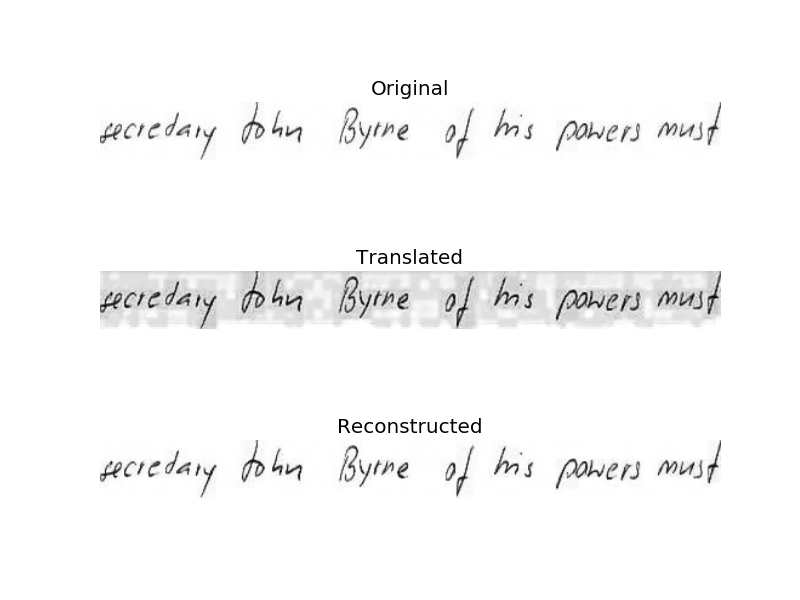 Original
secredary John Byrne of his powers must
Translated
secredary John Byrne of his powers must
Reconstructed
secredary John Byrne of his powers must